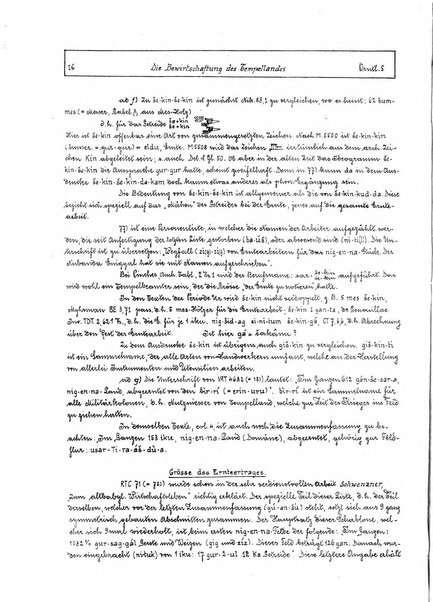 16 Die Bewirtschaftung des Tempellandes Orntl. 5
ad f) Zu še-kin-še-kin ist zunächst Nik. 88,1 zu vergleichen, wo es heisst: 62 hum-
d.h. für das Getreide še-kin
še-kin
Hier ist še-kin offenbar eine Art von zusammengesetztem Zeichen. Nach M. 5500 ist še-kin
(šunner = gur-gur) = eldu, Ernte. M 5508 wird das Zeichen irrtümlich aus dem arch. Zei-
chen Kin abgeleitet sein; auch Del. Sl. Gl. 50. Ob aber in der alten Zeit das Ideogramm še-
kin die Aussprache gur-gur hatte, scheint zweifelhaft. Denn in 771 kann da in dem Aus-
drucke še-kin-še-kin-da-kam doch kaum etwas anderes als phon. Ergänzung sein.
Die Bedeutung von še-kin ist allgemeiner als die von še-kin-kud-da. Dies
bezieht sich speziell auf das „Mähen" des Getreides bei der Ernte, jenes auf die gesamte Ernte-
arbeit.
771 ist eine Personenliste, in welcher die Namen der Arbeiter aufgezählt wer-
den, die seit Anfertigung der letzten Liste gestorben (ba-úš), oder abwesend sind (ni-til). Die Un-
terschrift ist zu übersetzen: „Wegfall (zig-zig) von Erntearbeitern für das nig-en-na-Stück. Der
Nubanda Eniggal hat sie mit Namen aufgeschrieben".
Bei Fincher Auk. Tabl. 2 Vs. 2 wird der Berufsname: sar-še-kin
še-kin aufgeführt. Das
wird wohl ein Tempelbeamter sein, der die Grösse der Ernte zu notieren hatte.
In den Texten der Periode Ur wird še-kin nicht verdoppelt, z.B. 5 mes še-kin,
Myhrmann BE 3, 71 pass. d.h. 5 mes-Hölzer für die Erntearbeit: še-kin 1 gan-ta, de Genouillac
Inv. TDT 2, 621 Vs., d.h. die E. für je 1 iku, nig-šid-ag si-ni-tum še-kin-gá, CT 7, 46, d.h. Abrechnung
über den Rest der Erntearbeit. Ist hier gá = šakānu?
Zu dem Ausdrucke še-kin ist übrigens auch giš-kin zu vergleichen. giš-kin-ti
ist ein Sammelname, der alle Arten von Handwerkern umfasst, welche an der Herstellung
von allerlei Instrumenten und Utensilien arbeiten.
ad g) Die Unterschrift von VAT 4682 (= 781) lautet: „Im Ganzen 612 gán-še-sar-a,
nig-en-na-Land, abgeerntet von den bir-ri (= erin-uru)". bir-ri ist ein Sammelname für
alle Militärkolonen, d.h. Nutzniesser von Tempelland, welche zur Zeit des Krieges ins Feld
zu ziehen hatten.
In demselben Texte, col. x, ist auch noch die Zusammenfassung zu be-
achten: Im Ganzen 153 iku, nig-en-na-Land (Domäne), abgeerntet, gehörig zur Feld-
flur: usar-Ti-ra-áš-dù-a.
Grösse des Ernteertrages.
RTC 71 (= 752) wurde schon in der sehr verdienstvollen Arbeit Schwenzner,
Zum altbabyl. Wirtschaftsleben" richtig erklärt. Der spezielle Teil dieser Liste, d.h. der Teil
derselben, welcher vor der letzten Zusammenfassung (gú-an-šú) steht, setzt sich aus 9 ganz
symmetrisch gebauten Abschnitten zusammen. Der Hauptsatz dieser Schablone, wel-
cher sich 9 mal wiederholt, ist beim ersten nig-en-na-Felde der folgende: Im Ganzen:
1782¾ gur-sag-gál Gerste und Weizen (gig und ziz). Dieses Feld beträgt 126 gán. Danach wur-
den eingebracht (níduk) von 1 iku: 17 gur-2-ul 12 Ka Getreide." Diese letztere Angabe erhält